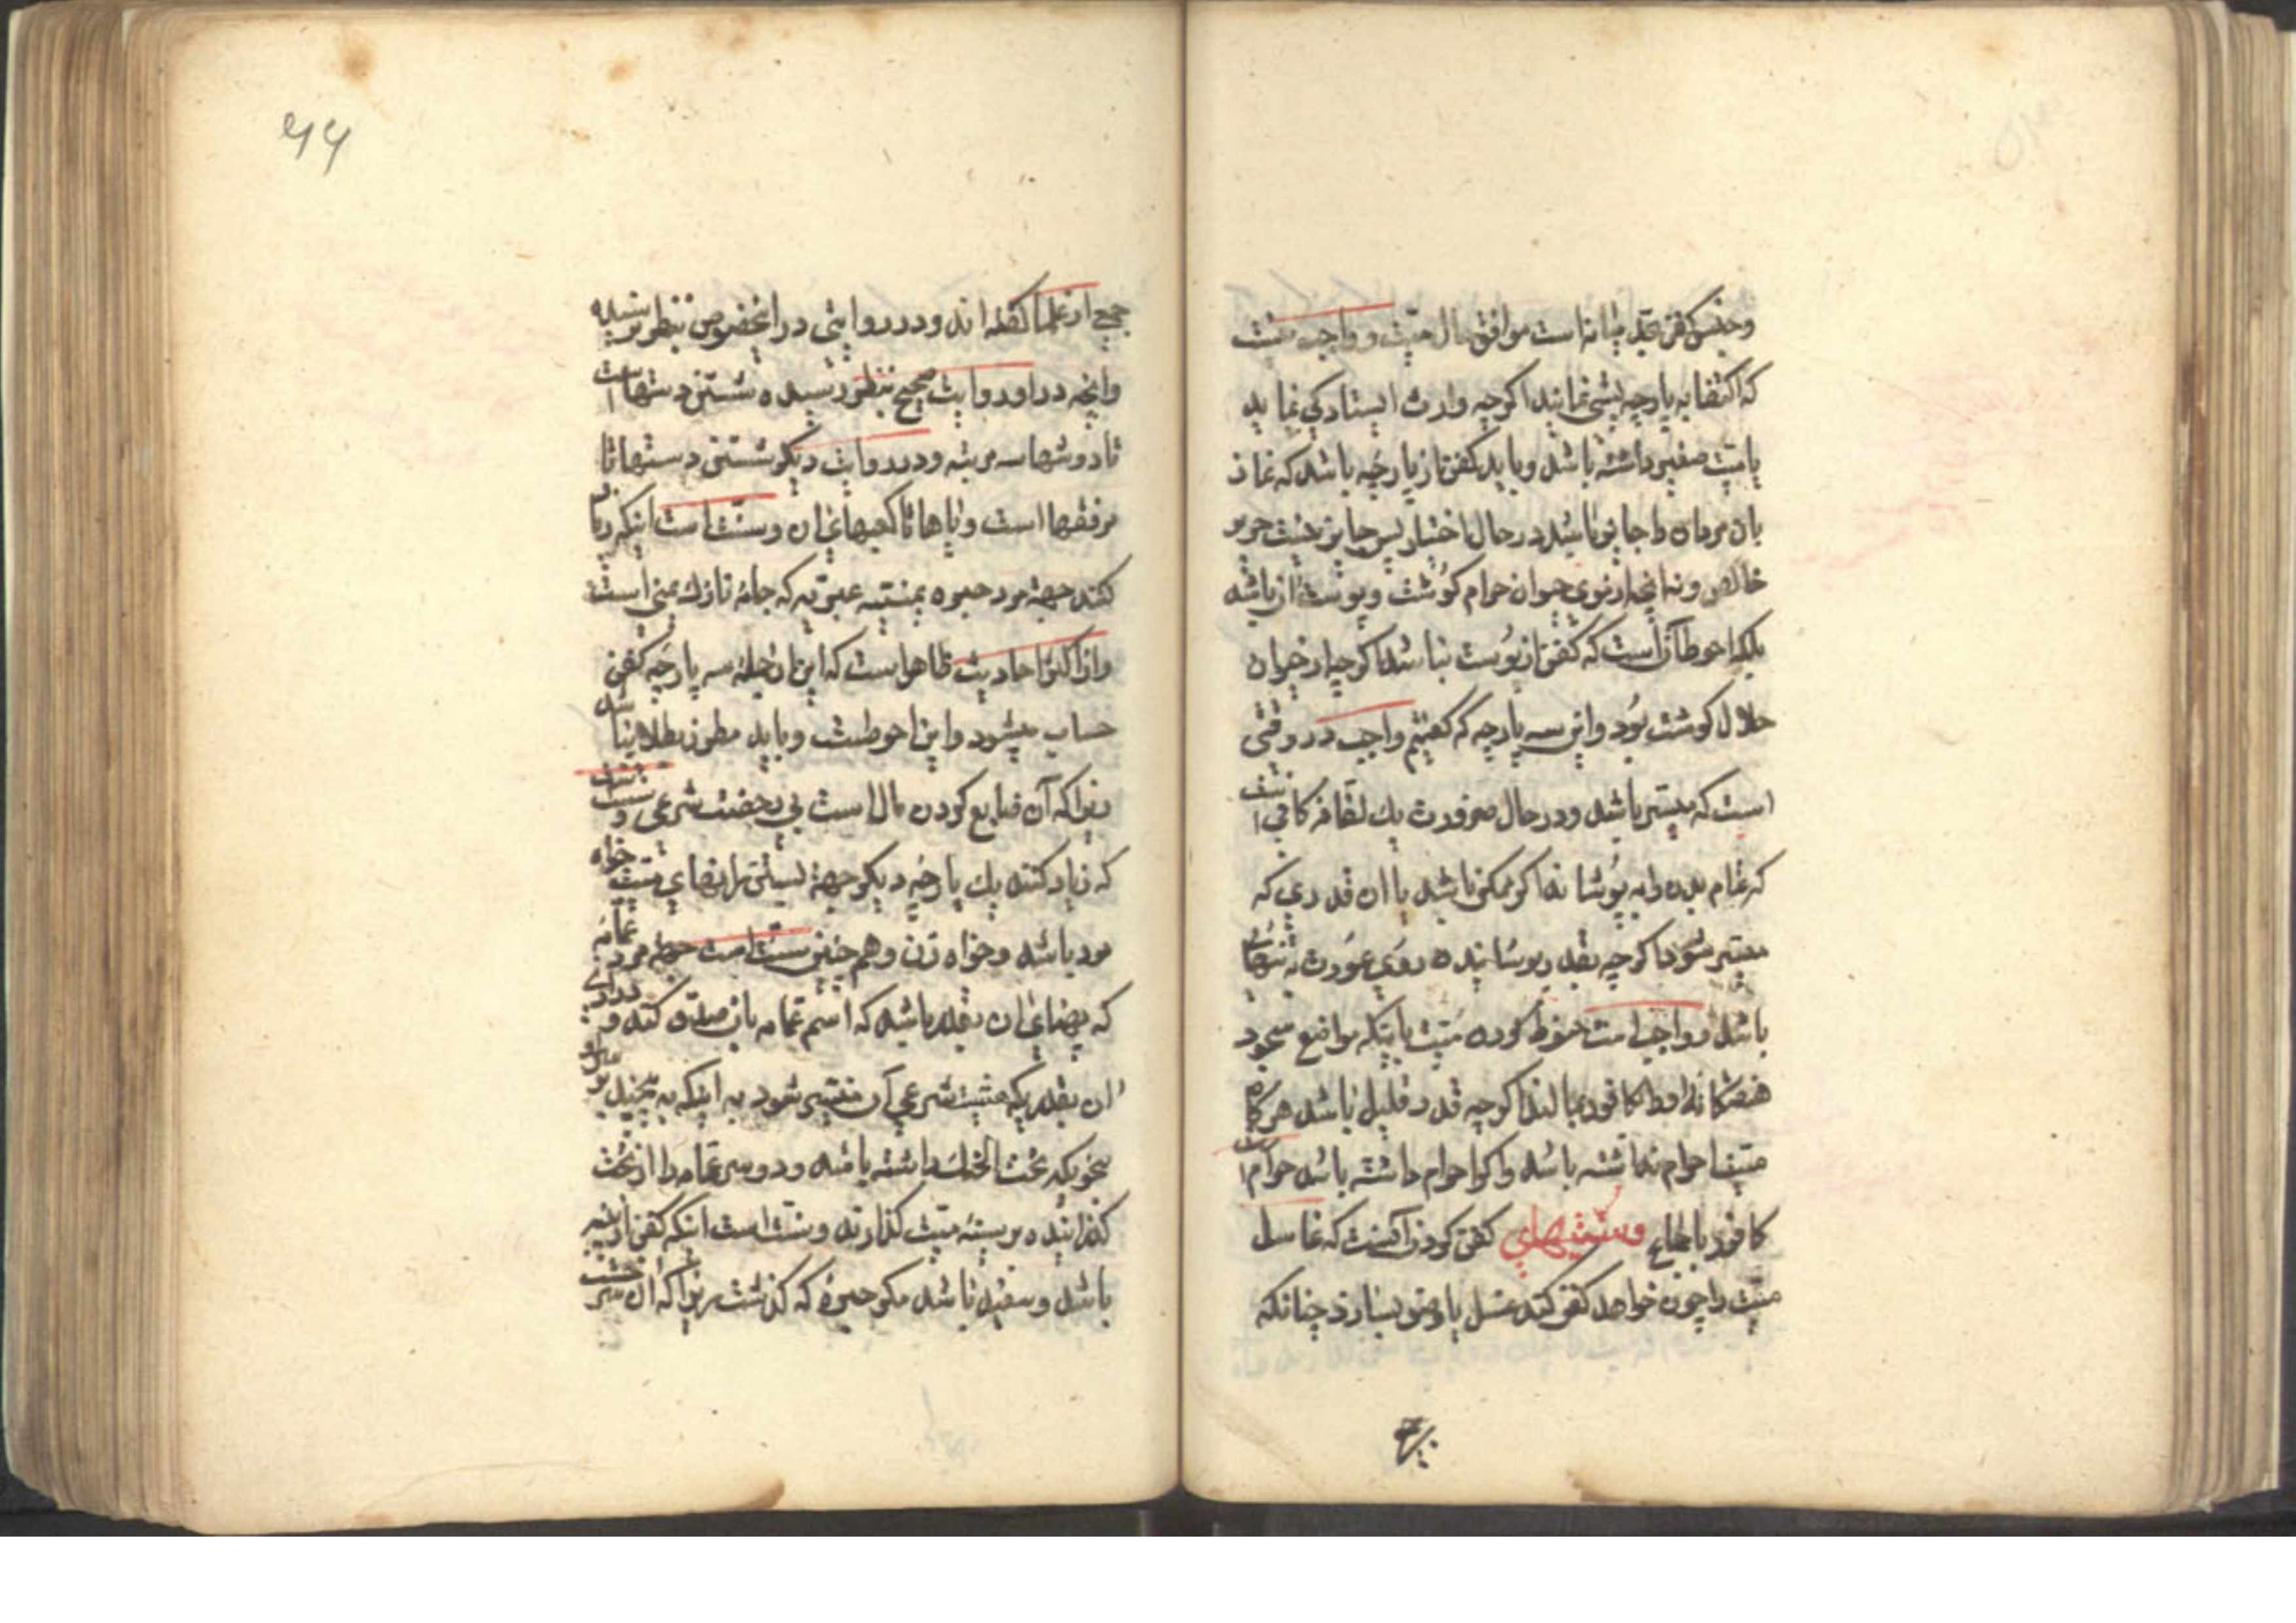 وجنس کفن میانه است موافق حال میّت و واجب نیست
که اکتفا به پارچه پستی نمایند اکرچه وارث ایستادکی نماید
یا میّت صغیر داشته باشد و باید کفن از پارچه باشد که نماز
بان مردان را جایز باشد در حال اختیار پس جایز نیست حریر
خالص و نه آنچه از موی حیوان حرام کوشت و پوست آن باشد
بلکه احوط آنست که کفن از پوست نباشد اکرچه از حیوان
حلال کوشت بود واین سه پارچه که کفتیم واجب در وقتی
است که میسّر باشد و در حال ضرورت یك لفافه کافی است
که تمام بدن را به پوشاند اکر ممکن باشد یا ان قدری که
میسّر شود اکرچه بقدر پوشانیدن روی عورت به تنهائی
باشد و واجب است حنوط کردن میّت باینکه مواضع سجود
هفتکانه او را کافور بمالند اکرچه قدر قلیل باشد هرکاه
میّت احرام نداشته باشد واکر احرام داشته باشد حرام است
کافور باجماع وسنّتهای کفن کردن آنست که غاسل
میّت را چون خواهد کفن کند غسل یا وضو بسازد چنانکه
جمع
۶۶
جمعی از علما کفته اند و در روایتی در اینخصوص بنظر نرسیده
وانچه در او روایت صحیح بنظر رسیده شستن دستها است
تا دوشها سه مرتبه و در روایت دیکر شستن دستها تا
مرفقها است و پاها تا کعبهای ان و سنّت است اینکه زیاد
کنند جهة مرد حبره یمنیّه عبریّه که جامهٔ نازك یمنی است
واز اکثر احادیث ظاهر است که این از جملهٔ سه پارچه کفن
حساب میشود واین احوطست و باید مطرز بطلا نباشد
زیرا که آن ضایع کردن مال است بی رخصت شرعی و سنّت است
که زیاد کنند یك پارچه دیکر جهة بستن رانهای میّت خواه
مرد باشد و خواه زن و هم چنین سنّت است جهة مرد عمّامه
که پهنای ان بقدر باشد که اسم عمّامه بان صدق کند و درازی
ان بقدریکه هیئت شرعی آن میسّر شود به اینکه به پیچند بر سر او
بنحویکه تحت الحنك داشته باشد و دو سر عمامه را از تحت
کذرانیده بر سینهٔ میّت کذارند و سنّت است انکه کفن از پنبه
باشد و سفید باشد مکر حبره که کذشت زیرا که آن سرخست